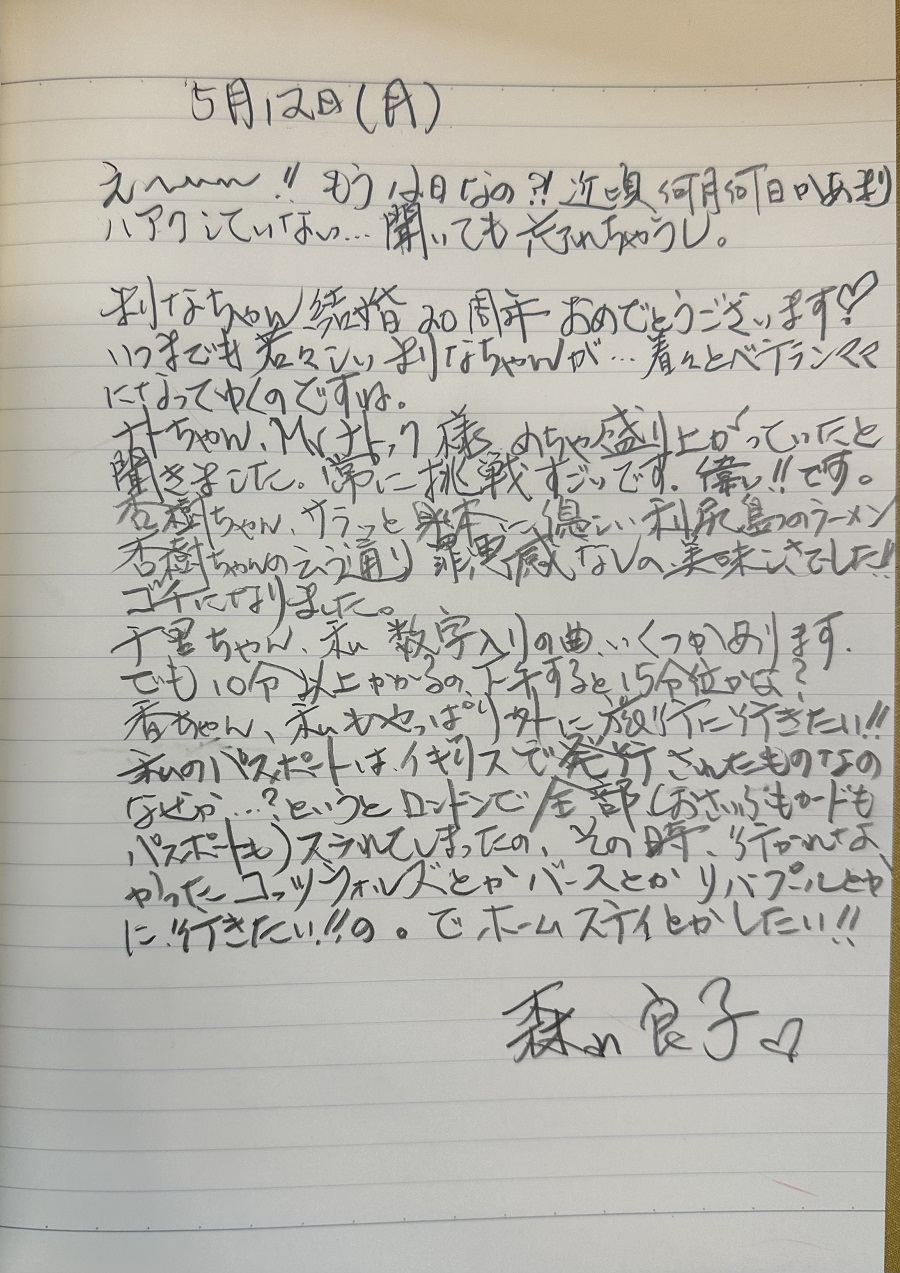 5月12日(月)
え〜〜〜!! もう12日なの?! 近頃 何月何日かあまり
ハアクしていない… 聞いても忘れちゃうし。
まりなちゃん 結婚20周年 おめでとうございます♡
いつまでも若々しいまりなちゃんが… 着々とベテランママ
になってゆくのですね。
ナトちゃん、Mrナトック様、めちゃ盛り上がっていたと
聞きました。常に挑戦すごいです。偉い!!です。
杏樹ちゃん、サラッと 身体に優しい利尻島のラーメン
杏樹ちゃんの云う通り 罪悪感なしの美味しさでした!!
ゴチになりました。
千里ちゃん、私 数字入りの曲、いくつかあります.
でも10分以上かかるの、下手すると15分位かな?
香ちゃん、私もやっぱり外に旅行に行きたい!!
私のパスポートは、イギリスで発行されたものなの
なぜか…?というと ロンドンで全部(おさいふもカードも
パスポートも)スラれてしまったの、その時、行かれなか
かったコッツウォルズとか バースとか リバプールとか
に行きたい!!の。で ホームステイとかしたい!!
森山良子♡